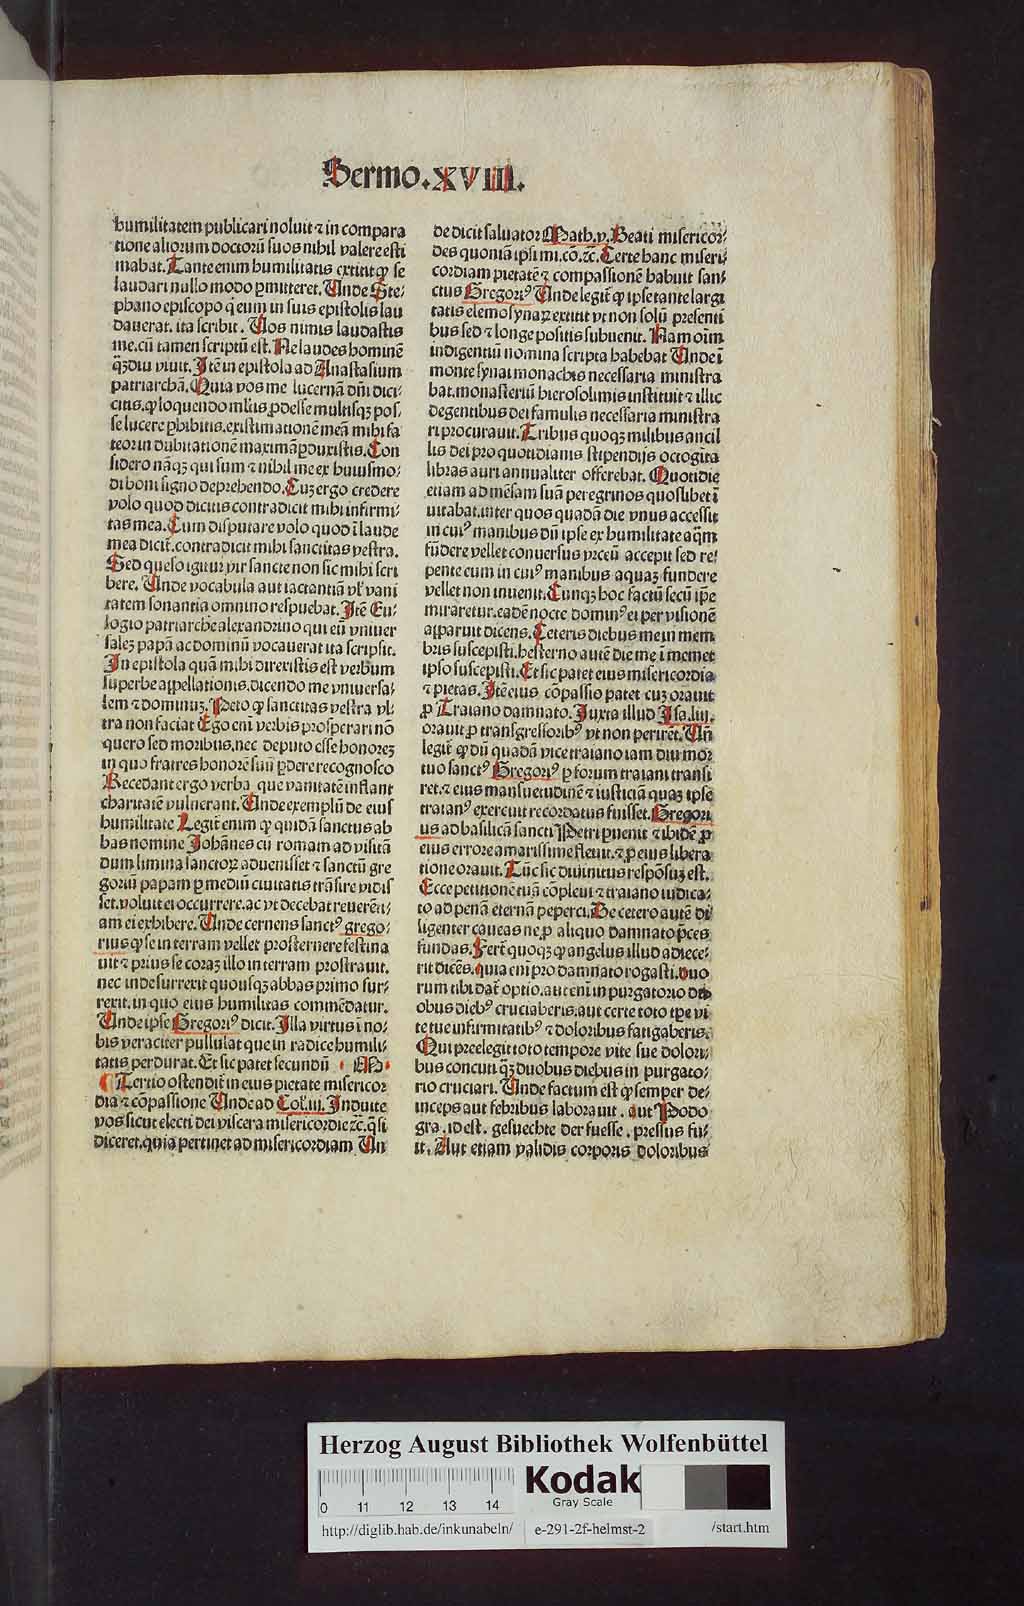 Sermo.XVIII.
humilitatem publicari noluit ⁊ in compara
tione aliorum doctorū suos nihil valere esti
mabat. Tante enim humilitatis extitit ꝙ se
laudari nullo modo ꝑmitteret. Unde Ste⸗
phano episcopo q̇ eum in suis epistolis lau
dauerat. ita scribit. Uos nimis laudastis
me. cū tamen scriptū est. Ne laudes hominē
qȝdiu viuit. Itē in epistola ad Anastasium
patriarchā. Quia vos me lucernā dn̄i dici⸗
citis. ꝙ loquendo ml̓tis ꝓdesse multisqȝ pos
se lucere ꝑhibitis. existimationē meā mihi fa
teor in dubitationē maximā ꝑduxistis. Con
sidero nāqȝ qui sum ⁊ nihil me ex huiusmo⸗
di boni signo deprehendo. Cuȝ ergo credere
volo quod dicitis contradicit mihi infirmi⸗
tas mea. Cum disputare volo quod ī laude
mea dicit̄. contradicit mihi sanctitas vestra.
Sed queso igitur vir sancte non sic mihi scri
bere. Unde vocabula aut iactantiā vl̓ vani
tatem sonantia omnino respuebat. Itē Eu⸗
logio patriarche alexandrino qui eū vniuer
saleȝ papā ac dominū vocauerat ita scripsit.
In epistola quā mihi direxistis est verbum
superbe appellationis. dicendo me vniuersa⸗
lem ⁊ dominuȝ. Peto ꝙ sanctitas vestra vl⸗
tra non faciat Ego enī verbis prosperari nō
quero sed moribus. nec deputo esse honoreȝ
in quo fratres honorē suū ꝑdere recognosco
Recedant ergo verba que vanitatē inflant
charitatē vulnerant. Unde exemplū de eius
humilitate Legit̄ enim ꝙ quidā sanctus ab
bas nomine Johānes cū romam ad visitā
dum limina sanctoꝝ aduenisset ⁊ sanctū gre
goriū papam ꝑ mediū ciuitatis trāsire vidis
set. voluit ei occurrere. ac vt decebat reuerēti⸗
am ei exhibere. Unde cernens sanctꝰ grego⸗
rius ꝙ se in terram vellet prosternere festina
uit ⁊ prius se coraȝ illo in terram prostrauit.
nec inde surrexit quousqȝ abbas primo sur⸗
rexit. in quo eius humilitas commēdatur.
Unde ipse Gregoriꝰ dicit. Illa virtus ī no⸗
bis veraciter pullulat que in radice humili⸗
tatis perdurat. Et sic patet secundū
¶ Tertio ostendit̄ in eius pietate misericor
dia ⁊ cōpassione Unde ad Col̓. iij. Induite
vos sicut electi dei viscera misericordie ⁊c̄. q̄si
diceret. quia pertinet ad misericordiam Un
de dicit saluator Math. v. Beati misericor⸗
des quoniā ipsi mi. cō. ⁊c̄. Certe hanc miseri⸗
cordiam pietatē ⁊ compassionē habuit san⸗
ctus Gregoriꝰ Unde legit̄ ꝙ ipse tante largi
tatis elemosynaꝝ extitit vt non solū presenti
bus sed ⁊ longe positis subuenit. Nam oīm
indigentiū nomina scripta habebat Unde ī
monte synai monachis necessaria ministra
bat. monasteriū hierosolimis instituit ⁊ illic
degentibus dei famulis necessaria ministra
ri procurauit. Tribus quoqȝ milibus ancil
lis dei pro quotidianis stipendijs octogita
libras auri annualiter offerebat. Quotidie
etiam ad mēsam suā peregrinos quoslibet ī
uitabat. inter quos quadā die vnus accessit
in cuiꝰ manibus dū ipse ex humilitate aq̄m
fūdere vellet conuersus vrceū accepit sed re⸗
pente eum in cuiꝰ manibus aquaȝ fundere
vellet non inuenit. Cunqȝ hoc factū secū ip̄e
miraretur. eadē nocte dominꝰ ei per visionē
apparuit dicens. Ceteris diebus me in mem
bris suscepisti. hesterno autē die me ī memet
ipso suscepisti. Et sic patet eius misericordia
⁊ pietas. Itē eius cōpassio patet cuȝ orauit
ꝓ Traiano damnato. Juxta illud Isa. liij.
orauit ꝓ transgressoribꝰ vt non perirēt. Un̄
legit̄ ꝙ dū quadā vice traiano iam diu mor
tuo sanctꝰ Gregoriꝰ ꝑ forum traiani transi
ret. ⁊ eius mansuetudinē ⁊ iusticiā quaȝ ipse
traianꝰ exercuit recordatus fuisset. Gregori
us ad basilicā sancti Petri ꝑuenit ⁊ ibidē ꝓ
eius errore amarissime fleuit. ⁊ ꝓ eius libera
tione orauit. Tūc sic diuinitus respōsuȝ est.
Ecce petitionē tuā cōpleui ⁊ traiano iudica⸗
to ad penā eternā peperci. De cetero autē di
ligenter caueas ne ꝓ aliquo damnato p̄ces
fundas. Fert̄ quoqȝ ꝙ angelus illud adiece⸗
rit dicēs. quia enī pro damnato rogasti. duo
rum tibi dat̄ optio. aut enī in purgatorio du
obus diebꝰ cruciaberis. aut certe toto tp̄e vi
te tue infirmitatibꝰ ⁊ doloribus fatigaberis.
Qui preelegit toto tempore vite sue dolori⸗
bus concuti qȝ duobus diebus in purgato⸗
rio cruciari. Unde factum est ꝙ semper de⸗
inceps aut febribus laborauit. aut Podo
gra. id est. gesuechte der fuesse. pressus fu⸗
it. Aut etiam validis corporis doloribus
Herzog August Bibliothek Wolfenbüttel
0 11 12 13 14
Kodak
Gray Scale
http://diglib.hab.de/inkunabeln/ e-291-2f-helmst-2 /start.htm